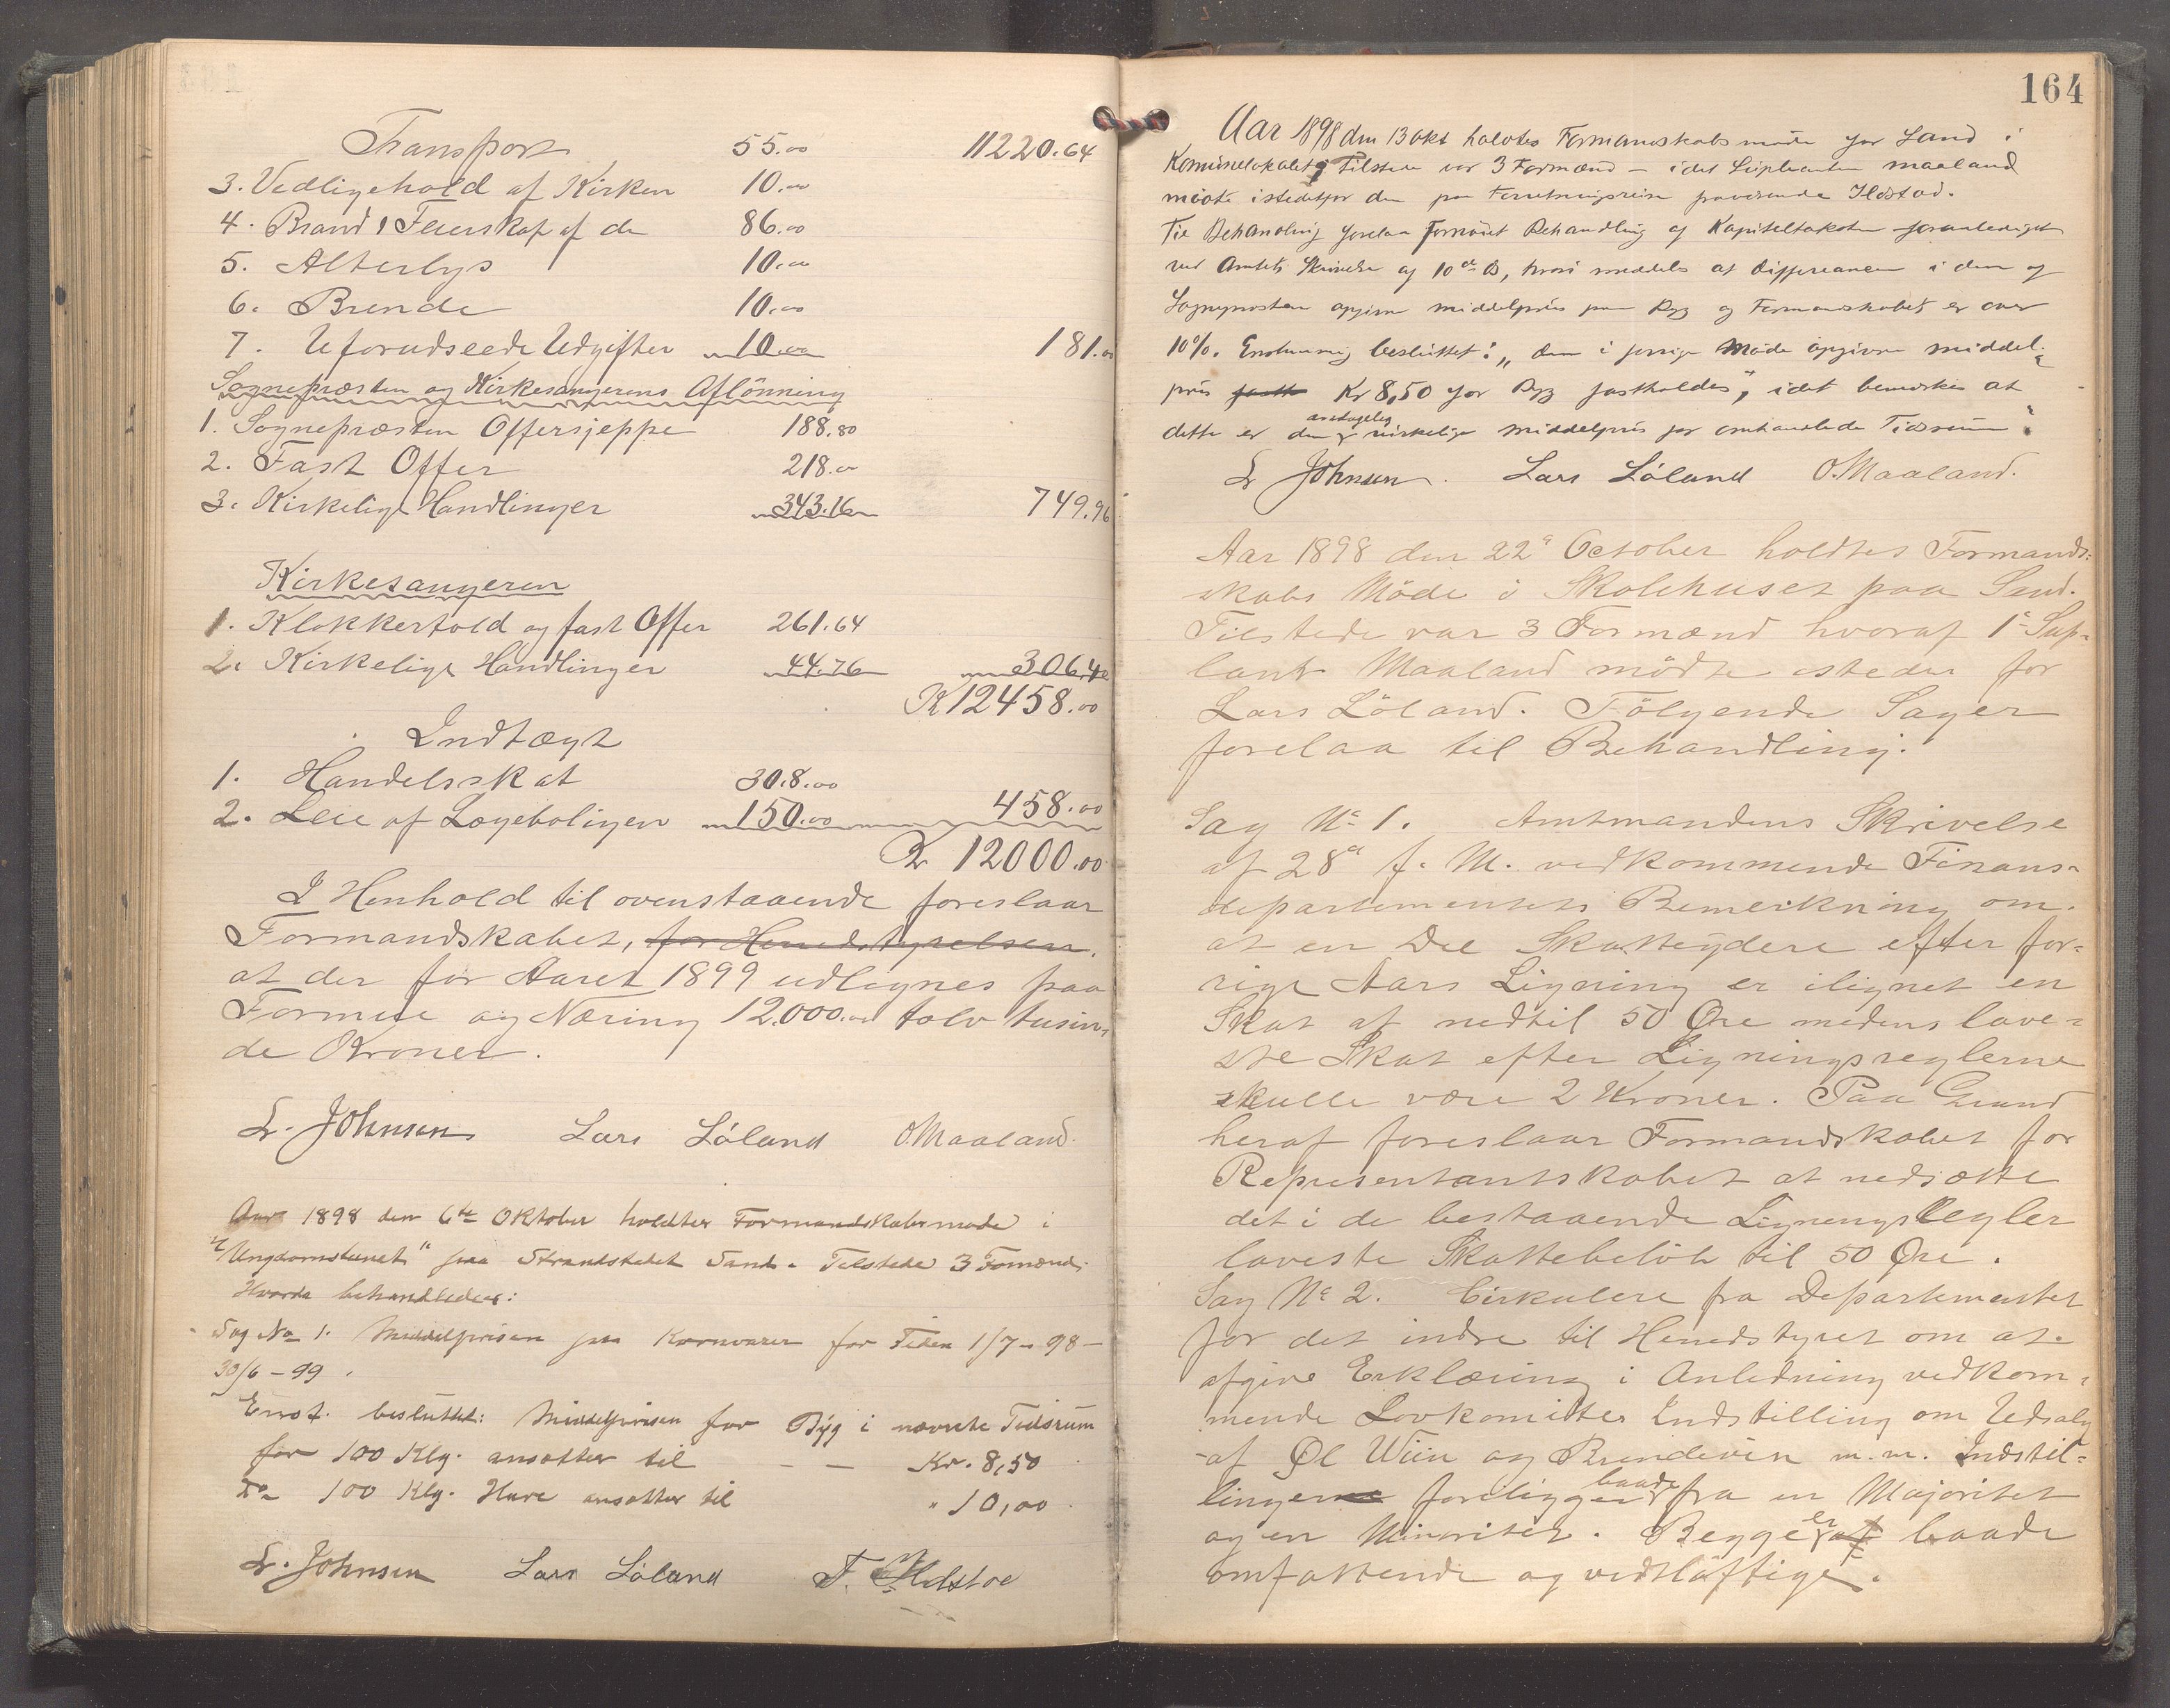 Transport 55.00 11220.64
3. Vedligehold af Kirken 10.00
4. Brand & Feierskat af do 86.00
5. Alterlys 10.00
6. Brende 10.00
7. Uforudseede Udgifter 10.00 181.00
Sognepræsten og Kirkesangerens Aflönning
1. Sognepræsten Offersjeppe 188.80
2. Fast Offer 218.00
3. Kirkelige Handlinger 343.16 749.96
Kirkesangeren
1. Klokkertold og fast Offer 261.64
2. Kirkelige Handlinger 44.76 306.40
K 12458.00
Indtægt
1. Handelsskat 308.00
2. Leie af Lægeboligen 150.00 458.00
Kr 12000.00
I Henhold til ovenstaaende foreslaar
Formandskabet, for Herredstyrelsen.
at der for Aaret 1899 udlignes paa
Formue og Næring 12.000.00 tolv tusin-
de Kroner.
Lr. Johnsen Lars Löland O. Maaland.
Aar 1898 den 6te Oktober holdtes Formandskabsmøde i
"Ungdomstunet" paa Strandstedet Sand. Tilstede 3 Formænd.
Hvorda behandledes:
Sag No 1. Middelprisen paa Kornvarer for Tiden 1/7-98-
30/6-99.
Enst. besluttet: Middelprisen for Byg i nævnte Tidsrum
for 100 Klg. ansættes til — — Kr. 8,50
Do 100 Klg. Havre ansættes til " 10,00
Lr. Johnsen Lars Löland T. Helstoe
164
Aar 1898 den 13 okt holdtes Formandskabsmøde for Sand i
Komunelokalet. Tilstede var 3 Formænd – idet Suplianten Maaland
mødte istedetfor den paa Forretningsreise
Til Behandling forelaa fornøiet Behandling af Kapiteltaksten foranlediget
ved Amtets Skrivelse af 10de ds, hvori meddeles at differeancen i den af
Sognepræsten opgivne middelpris paa Byg og Formandskabet er over
10%. Enstemmig besluttet: "den i forrige Møde opgivne middel-
pris fastt Kr 8,50 for Byg fastholdes", idet bemærkes at
dette er den antagelig virkelige middelpris for omhandlede Tidsrum.
Lr Johnsen. Lars Löland O. Maaland.
Aar 1898 den 22de October holdtes Formands-
skabs Möde i Skolehuset paa Sand.
Tilstede var 3 Formænd hvoraf 1ste Sup-
lant Maaland mödte isteden for
Lars Löland. Fölgende Sager
forelaa til Behandling.
Sag No 1. Amtmandens Skrivelse
af 28de f. M. vedkommende Finans-
departementets Bemerkning om.
at en Del Skatteydere efter for-
rige Aars Ligning er ilignet en
Skat af nedtil 50 Øre medens lave-
ste Skat efter Ligningsreglerne
skulle være 2 Kroner. Paa Grund
heraf foreslaar Formandskabet for
Representantskabet at nedsætte
det i de bestaaende Ligningsregler
laveste Skattebelöb til 50 Øre.
Sag No 2. Cirkulere fra Departementet
for det indre til Herredstyret om at
afgive Erklæring i Anledning vedkom-
mende Lovkomitees Indstilling om Udsalg
af Øl Wiin og Brendevin m.m. Indstil-
lingerne foreligger baade fra en Majoritet
og en Minoritet. Begge er af baade
omfattende og vidtlöftige.